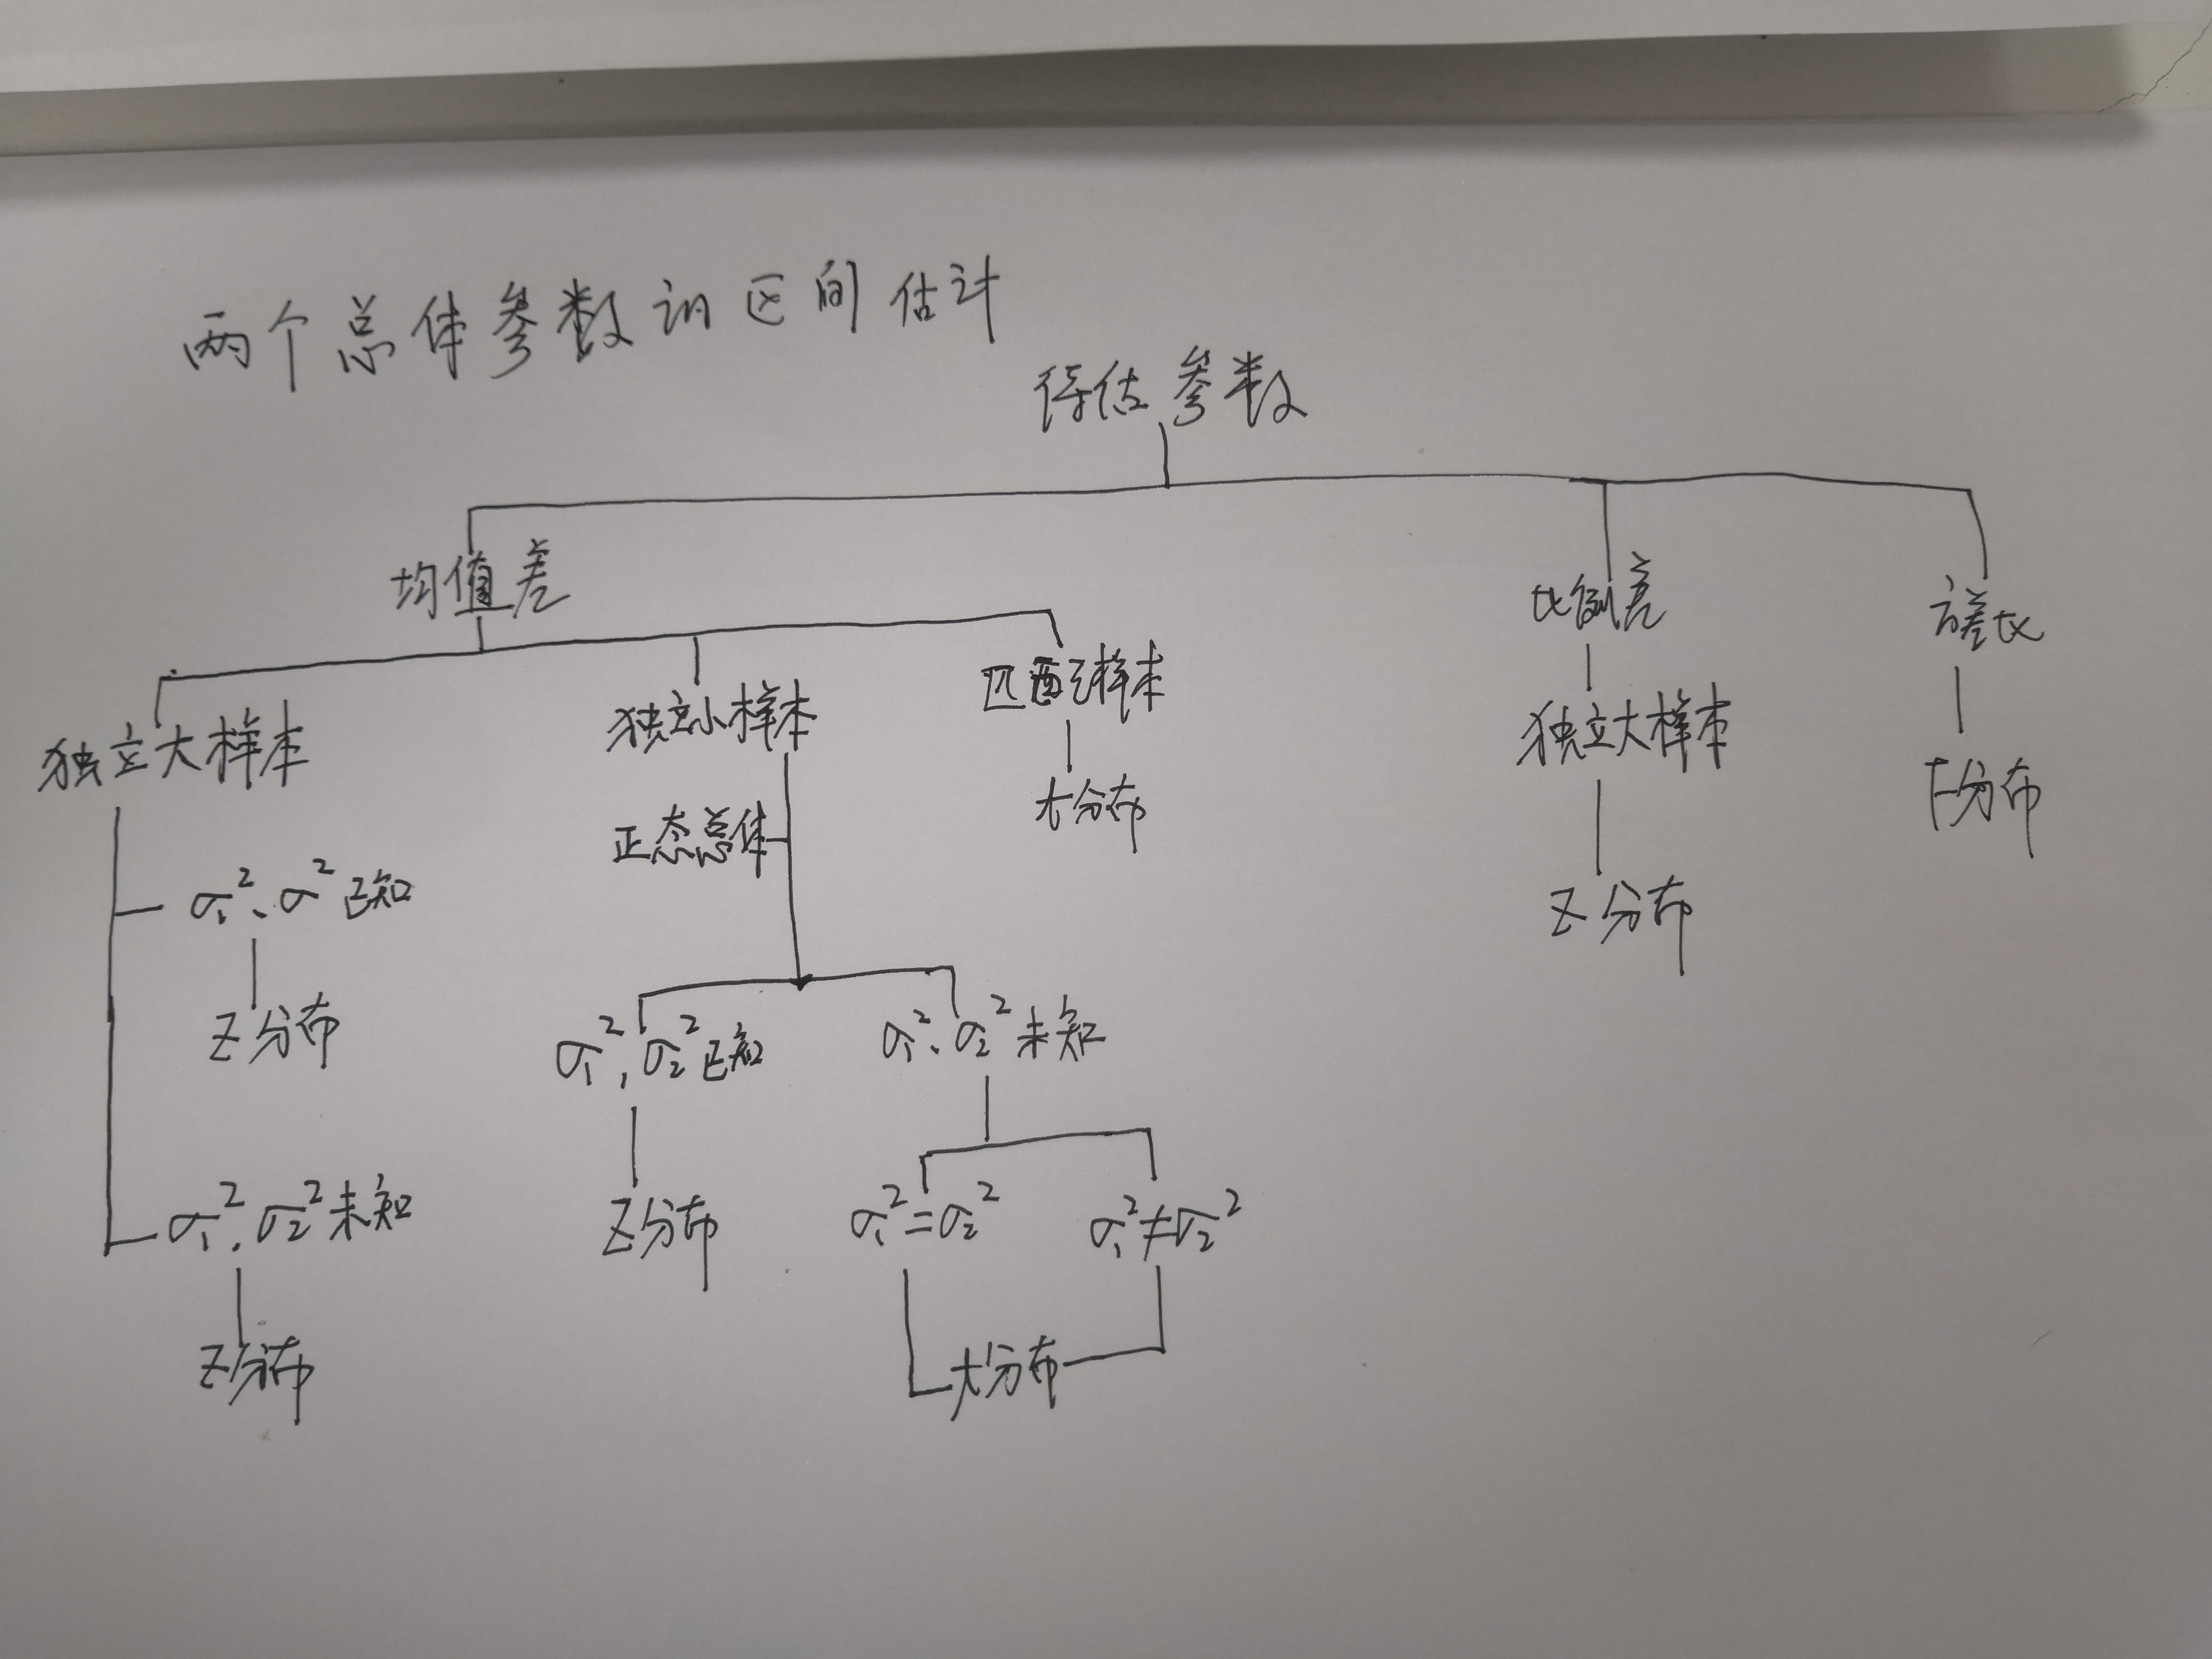 两个总体参数的区间估计
待估参数
均值差 比例差 方差比
独立大样本 独立小样本 匹配样本 独立大样本 F分布
正态总体 t分布 Z分布
σ₁²、σ²已知
Z分布
σ₁²,σ₂²已知 σ₁²、σ₂²未知
σ₁²,σ₂²未知 Z分布 σ₁²=σ₂² σ₁²≠σ₂²
Z分布 t分布